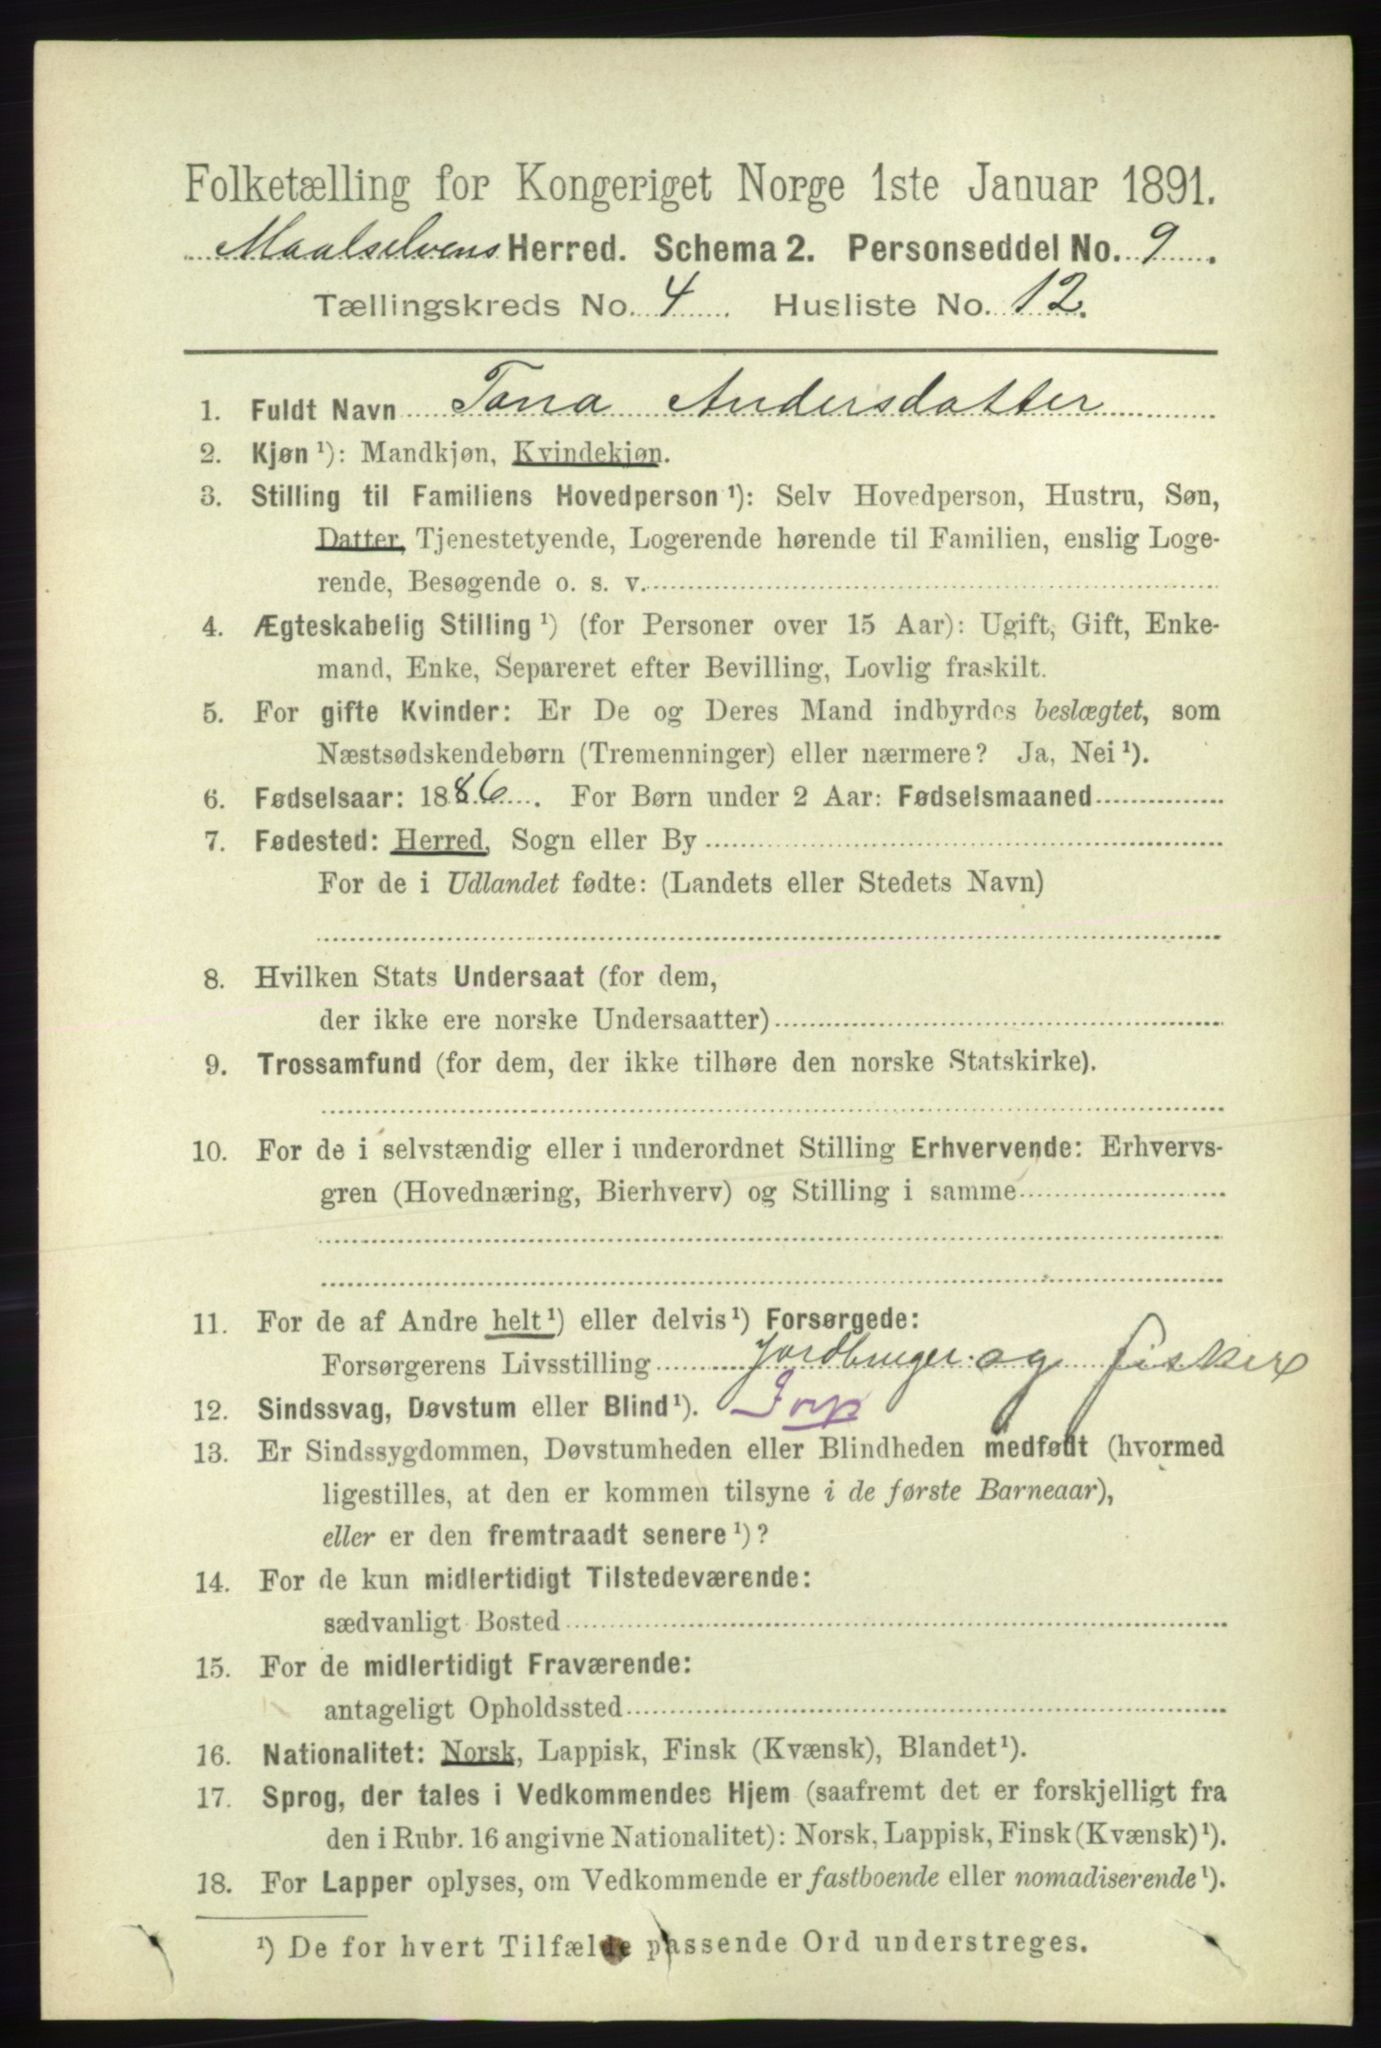 Folketælling for Kongeriget Norge 1ste Januar 1891.
Maalselvens Herred. Schema 2. Personseddel No. 9.
Tællingskreds No. 4. Husliste No. 12.
1. Fuldt Navn Tona Andersdatter
2. Kjøn ¹): Mandkjøn, Kvindekjøn.
3. Stilling til Familiens Hovedperson ¹): Selv Hovedperson, Hustru, Søn,
Datter, Tjenestetyende, Logerende hørende til Familien, enslig Loge-
rende, Besøgende o. s. v.
4. Ægteskabelig Stilling ¹) (for Personer over 15 Aar): Ugift, Gift, Enke-
mand, Enke, Separeret efter Bevilling, Lovlig fraskilt.
5. For gifte Kvinder: Er De og Deres Mand indbyrdes beslægtet, som
Næstsødskendebørn (Tremenninger) eller nærmere? Ja, Nei ¹).
6. Fødselsaar: 1886. For Børn under 2 Aar: Fødselsmaaned
7. Fødested: Herred, Sogn eller By
For de i Udlandet fødte: (Landets eller Stedets Navn)
8. Hvilken Stats Undersaat (for dem,
der ikke ere norske Undersaatter)
9. Trossamfund (for dem, der ikke tilhøre den norske Statskirke).
10. For de i selvstændig eller i underordnet Stilling Erhvervende: Erhvervs-
gren (Hovednæring, Bierhverv) og Stilling i samme
11. For de af Andre helt ¹) eller delvis ¹) Forsørgede:
Forsørgerens Livsstilling Jordbruger og fisker
12. Sindssvag, Døvstum eller Blind ¹).
13. Er Sindssygdommen, Døvstumheden eller Blindheden medfødt (hvormed
ligestilles, at den er kommen tilsyne i de første Barneaar),
eller er den fremtraadt senere ¹)?
14. For de kun midlertidigt Tilstedeværende:
sædvanligt Bosted
15. For de midlertidigt Fraværende:
antageligt Opholdssted
16. Nationalitet: Norsk, Lappisk, Finsk (Kvænsk), Blandet ¹).
17. Sprog, der tales i Vedkommendes Hjem (saafremt det er forskjelligt fra
den i Rubr. 16 angivne Nationalitet): Norsk, Lappisk, Finsk (Kvænsk) ¹).
18. For Lapper oplyses, om Vedkommende er fastboende eller nomadiserende ¹).
¹) De for hvert Tilfælde passende Ord understreges.